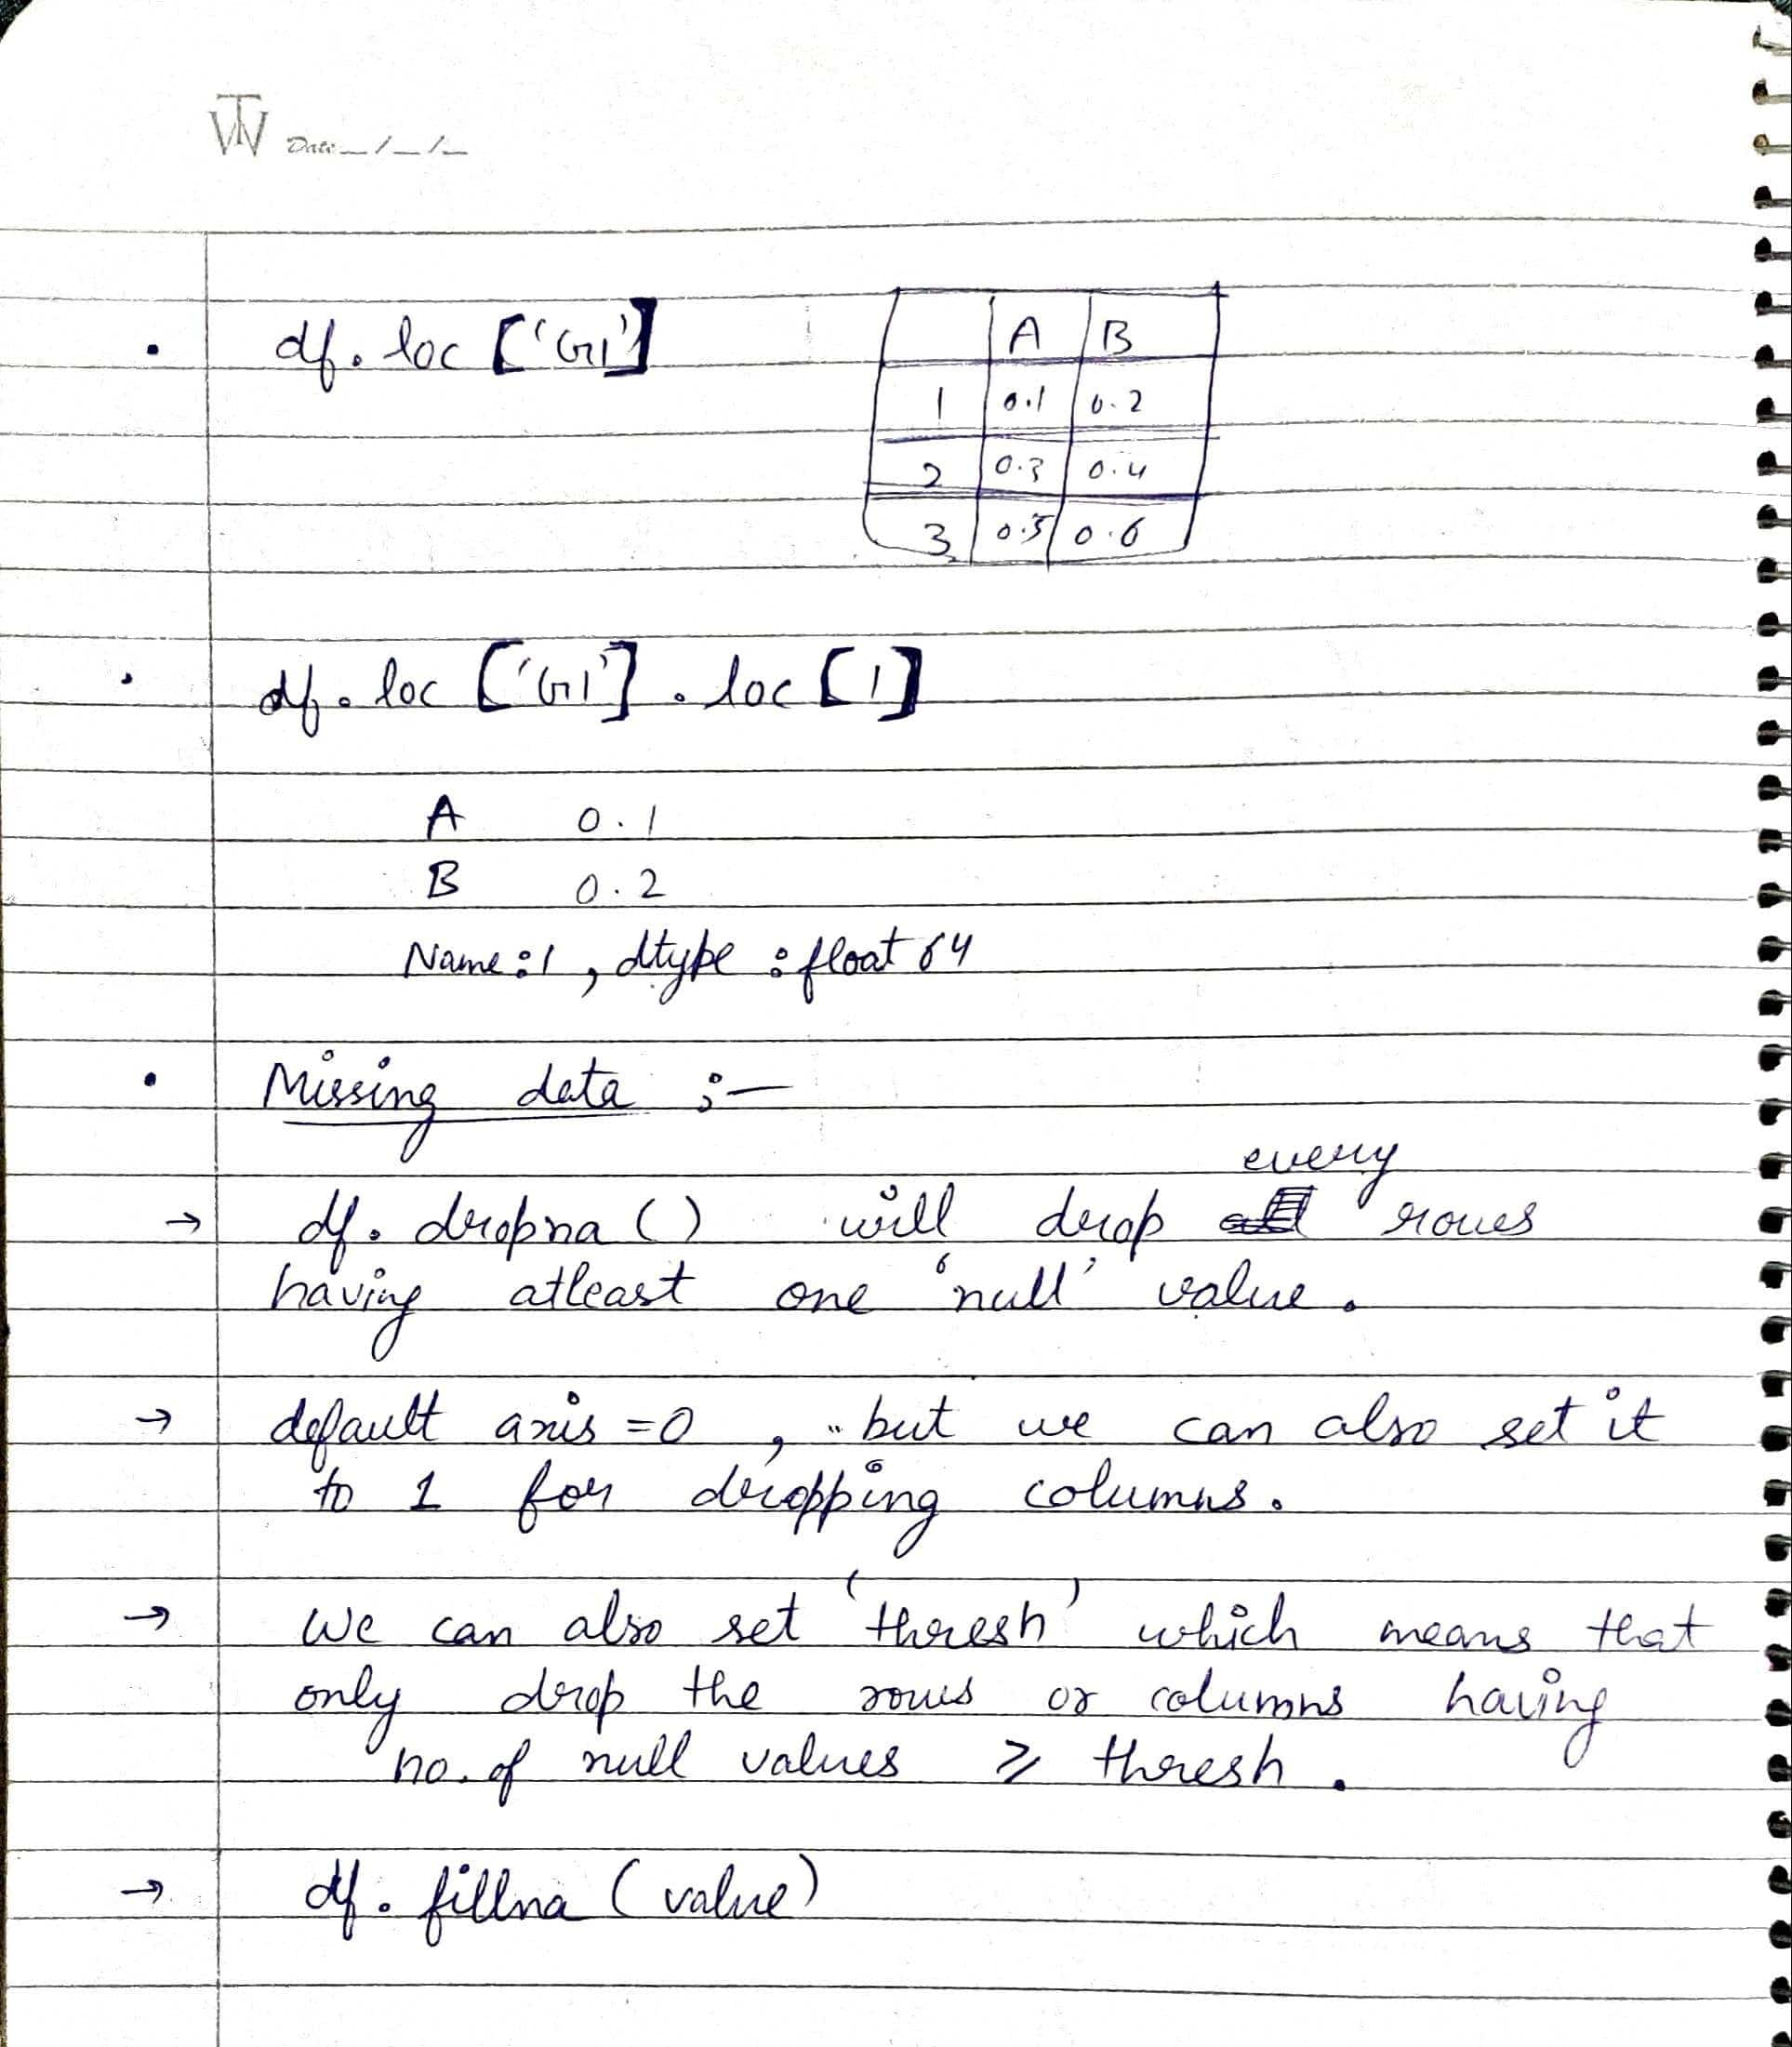 TW Date _/_/_
• df. loc ['G1']
A B
1 0.1 0.2
2 0.3 0.4
3 0.5 0.6
• df. loc ['G1'] . loc [1]
A 0.1
B 0.2
Name: 1, dtype : float 64
• Missing data :-
every
→ df. dropna () will drop rows
having atleast one 'null' value.
→ default axis = 0, but we can also set it
to 1 for dropping columns.
→ We can also set 'thresh' which means that
only drop the rows or columns having
no. of null values ⩾ thresh.
→ df. fillna (value)